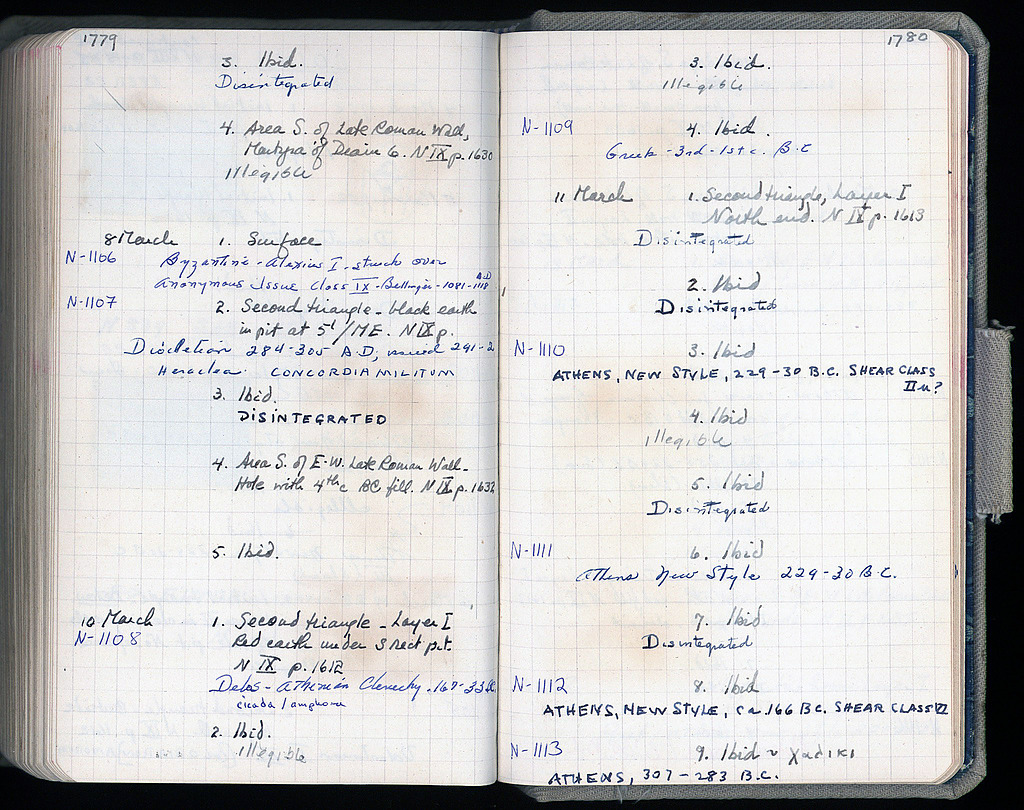 1779
3. Ibid.
Disintegrated
4. Area S. of Late Roman Wall,
Martyra of Deam 6. N IX p. 1630
illegible
8 March 1. Surface
N-1106 Byzantine - Alexius I - struck over
Anonymous Issue Class IX - Bellinger - 1081-1118 A.D
N-1107 2. Second triangle - black earth
in pit at 5'/ME. N IX p.
Diocletian 284-305 A.D, issued 291-2
Heraclea. CONCORDIA MILITUM
3. Ibid.
DISINTEGRATED
4. Area S. of E-W. Late Roman Wall -
Hole with 4th c BC fill. N IX p. 1632
5. Ibid.
10 March 1. Second triangle - Layer I
N-1108 Red earth under S rect pit.
N IX p. 1612
Delos - Athenian Cleruchy - 167-
cicada / amphora
2. Ibid.
illegible
1780
3. Ibid.
illegible
N-1109 4. Ibid.
Greek - 3rd - 1st c. B.C
11 March 1. Second triangle, Layer I
North end. N IX p. 1613
Disintegrated
2. Ibid
Disintegrated
N-1110 3. Ibid
ATHENS, NEW STYLE, 229-30 B.C. SHEAR CLASS
II
4. Ibid
illegible
5. Ibid
Disintegrated
N-1111 6. Ibid
Athens New Style 229-30 B.C.
7. Ibid
Disintegrated
N-1112 8. Ibid
ATHENS, NEW STYLE, ca. 166 B.C. SHEAR CLASS VI
N-1113 9. Ibid ~ χαλικι
ATHENS, 307-283 B.C.